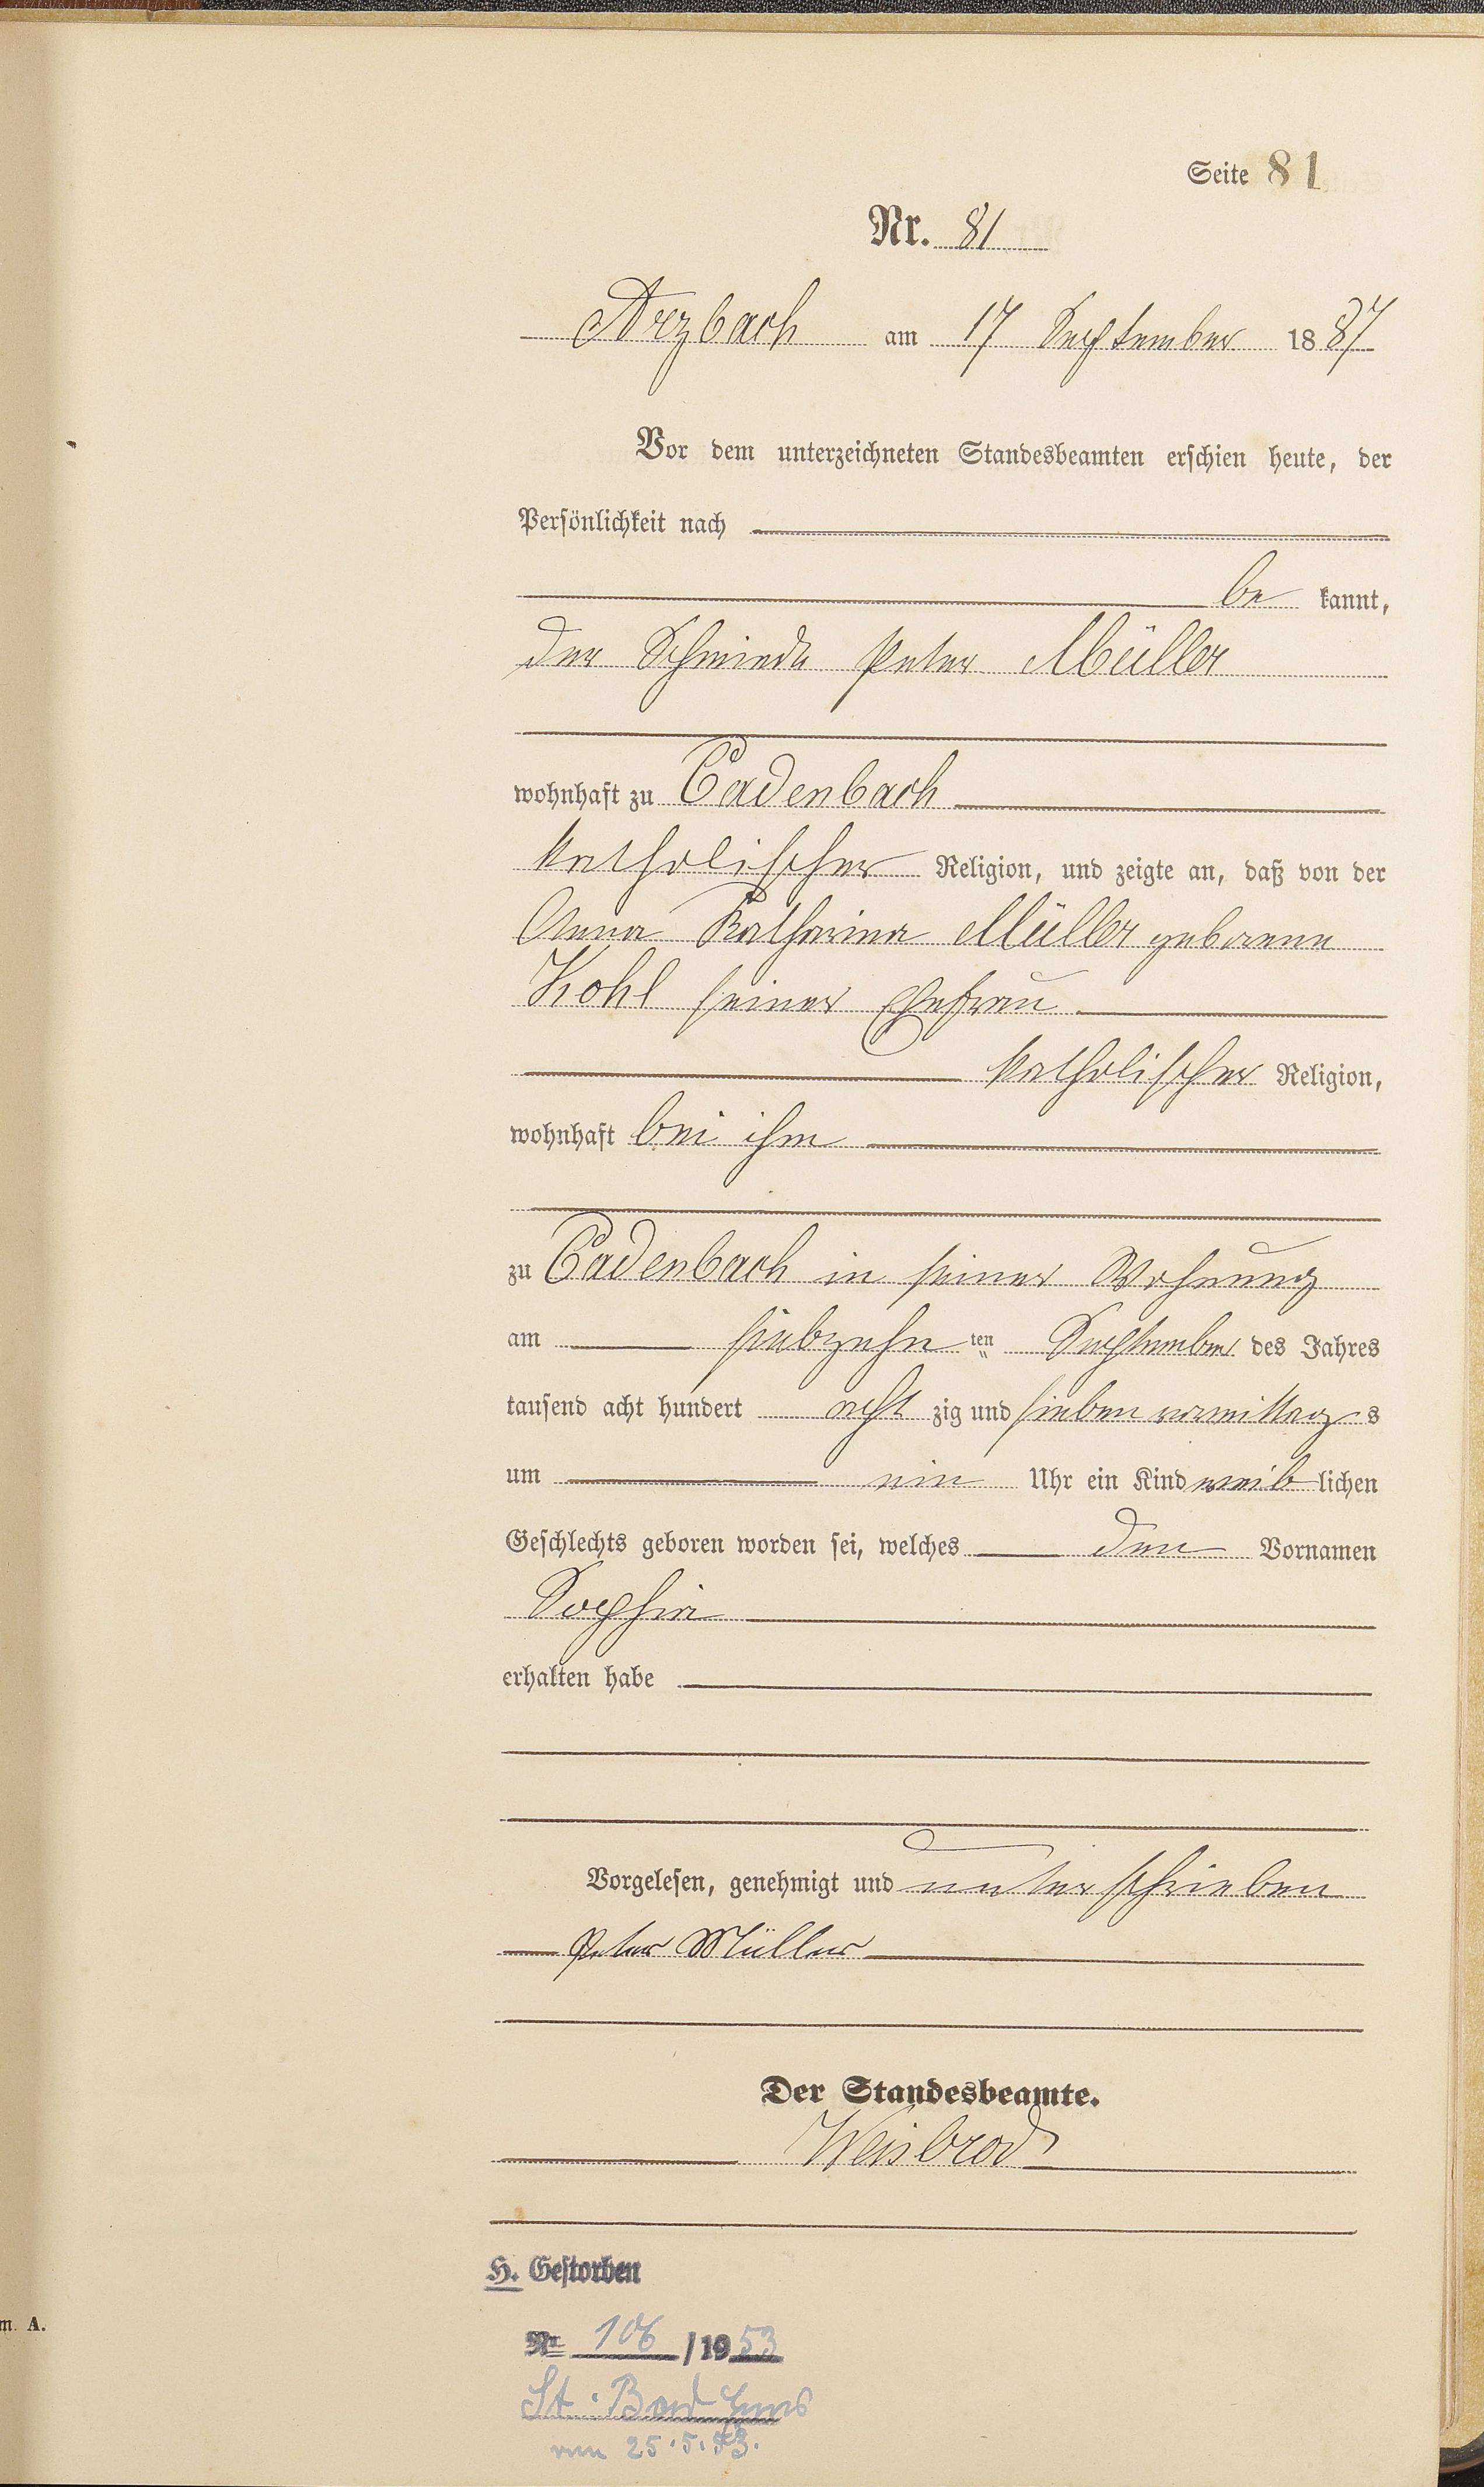 Seite 81
Nr. 81
Arzbach am 17 September 1887
Vor dem unterzeichneten Standesbeamten erschien heute, der
Persönlichkeit nach
be kannt,
der Schmied Peter Müller
wohnhaft zu Cadenbach
katholischer Religion, und zeigte an, daß von der
Anna Katharina Müller geborene
Kohl seiner Ehefrau
katholischer Religion,
wohnhaft bei ihm
zu Cadenbach in seiner Wohnung
am siebzehn ten September des Jahres
tausend acht hundert acht zig und sieben vormittag s
um ein Uhr ein Kind weib lichen
Geschlechts geboren worden sei, welches den Vornamen
Sophie
erhalten habe
Vorgelesen, genehmigt und unterschrieben
Peter Müller
Der Standesbeamte.
Weisbrod
H. Gestorben
m. A.
Nr 106 /1953
St. Bad Ems
vom 25.5.53.